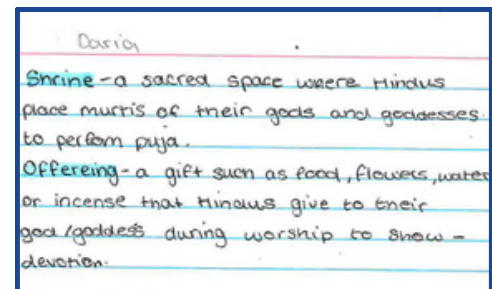 Daria
Shrine - a sacred space where Hindus
place murtis of their gods and goddesses
to perfom puja.
Offereing - a gift such as food, flowers, water
or incense that Hindus give to their
god/goddess during worship to show -
devotion.